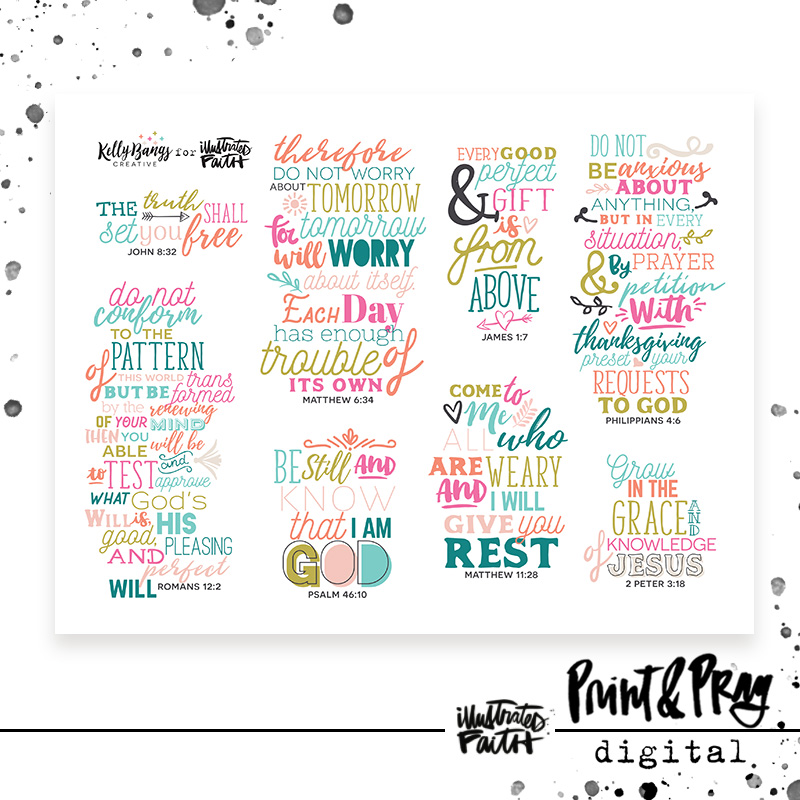 Kelly Bangs for illustrated
CREATIVE FAITH
THE truth SHALL
set you free
JOHN 8:32
do not
conform
TO THE
PATTERN
of THIS WORLD trans
BUT BE formed
by the renewing
OF YOUR MIND
THEN YOU will be
ABLE and
to TEST approve
WHAT God's
WILL is, HIS
good, PLEASING
AND perfect
WILL ROMANS 12:2
therefore
DO NOT WORRY
ABOUT TOMORROW
for tomorrow
will WORRY
about itself.
EACH Day
has enough
trouble of
ITS OWN
MATTHEW 6:34
BE Still AND
KNOW
that I AM
GOD
PSALM 46:10
EVERY GOOD
& perfect
GIFT
is
from
ABOVE
JAMES 1:7
COME to
Me
ALL who
ARE WEARY
AND I WILL
GIVE you
REST
MATTHEW 11:28
DO NOT
BE anxious
ABOUT
ANYTHING,
BUT IN EVERY
situation,
& By PRAYER
petition
With
thanksgiving
preset your
REQUESTS
TO GOD
PHILIPPIANS 4:6
Grow
IN THE
GRACE AND
of KNOWLEDGE
JESUS
2 PETER 3:18
illustrated
FAITH
Print & Pray
digital